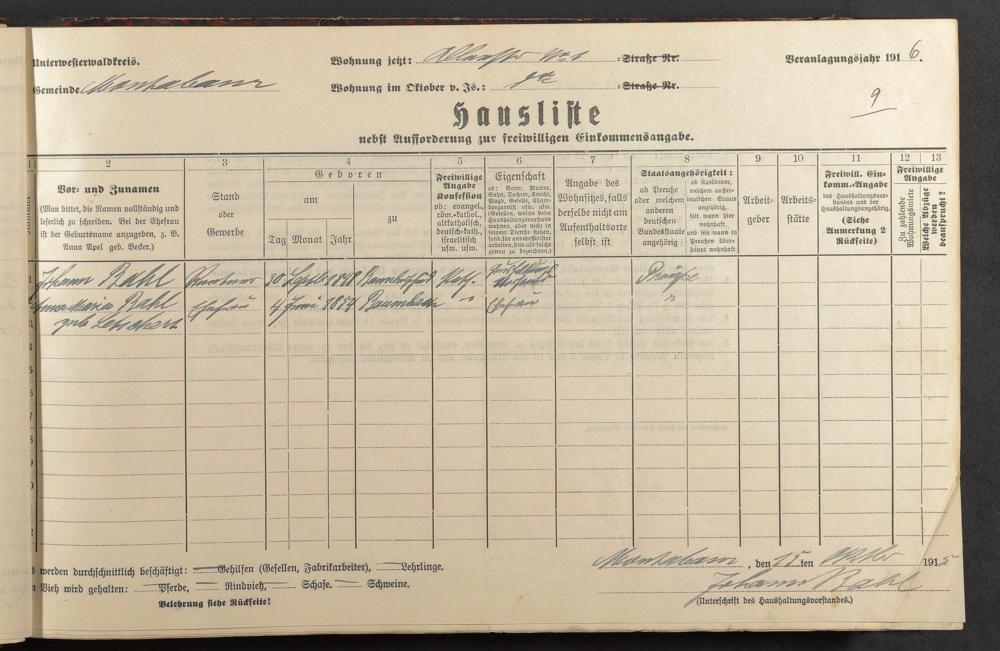 Unterwesterwaldkreis.
Wohnung jetzt: No 1 Straße Nr.
Veranlagungsjahr 1916.
Gemeinde Montabaur
Wohnung im Oktober v. Js.: Straße Nr.
9
Hausliste
nebst Aufforderung zur freiwilligen Einkommensangabe.
1 2 3 4 5 6 7 8 9 10 11 12 13
Vor- und Zunamen
(Man bittet, die Namen vollständig und
leserlich zu schreiben. Bei der Ehefrau
ist der Geburtsname anzugeben, z. B.
Anna Apel geb. Becker.)
Stand
oder
Gewerbe
Geboren
am
Tag Monat Jahr
zu
Freiwillige
Angabe
Konfession
ob: evangel.,
röm.-kathol.,
altkatholisch,
deutsch-kath.,
israelitisch
usw. usw.
Eigenschaft
ob: Vater, Mutter,
Sohn, Tochter, Knecht,
Magd, Geselle,
Angabe des
Wohnsitzes, falls
derselbe nicht am
Aufenthaltsorte
selbst ist
Staatsangehörigkeit:
ob Preuße
oder welchem
anderen
deutschen
Bundesstaate
angehörig;
ob Ausländer,
welchem außer-
deutschen Staate
angehörig,
seit wann hier
wohnhaft
und seit wann in
Preußen über-
haupt wohnhaft
Arbeit-
geber
Arbeits-
stätte
Freiwill. Ein-
komm.-Angabe
des Haushaltungsvor-
standes und der
Haushaltungsangehörig.
(Siehe
Anmerkung 2
Rückseite)
Freiwillige
Angabe
Zu zahlende
Wohnungsmiete
Welche Abzüge
werden
beansprucht?
1 Johann Bahl Rentner 30 Kath. Preuße
Anna Maria Bahl Ehefrau 4 Juni Baumbach " Ehefrau "
geb. Letschert
werden durchschnittlich beschäftigt: Gehilfen (Gesellen, Fabrikarbeiter), Lehrlinge.
Vieh wird gehalten: Pferde, Rindvieh, Schafe, Schweine.
Belehrung siehe Rückseite!
Montabaur, den 15 ten Oktober 1915
Johann Bahl
(Unterschrift des Haushaltungsvorstandes.)